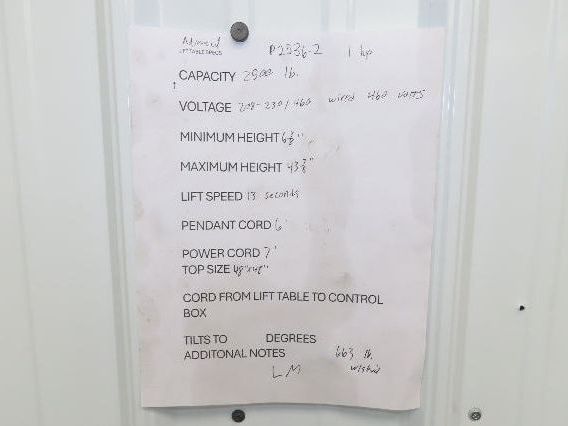 Advanced P2536-2 1 hp
LIFT TABLE SPECS
CAPACITY 2500 lb.
VOLTAGE 208-230/460 wired 460 volts
MINIMUM HEIGHT 6 1/2"
MAXIMUM HEIGHT 43 7/8"
LIFT SPEED 13 seconds
PENDANT CORD 6'
POWER CORD 7'
TOP SIZE 48"x48"
CORD FROM LIFT TABLE TO CONTROL
BOX
TILTS TO DEGREES
ADDITONAL NOTES 663 lb.
LM w/skid